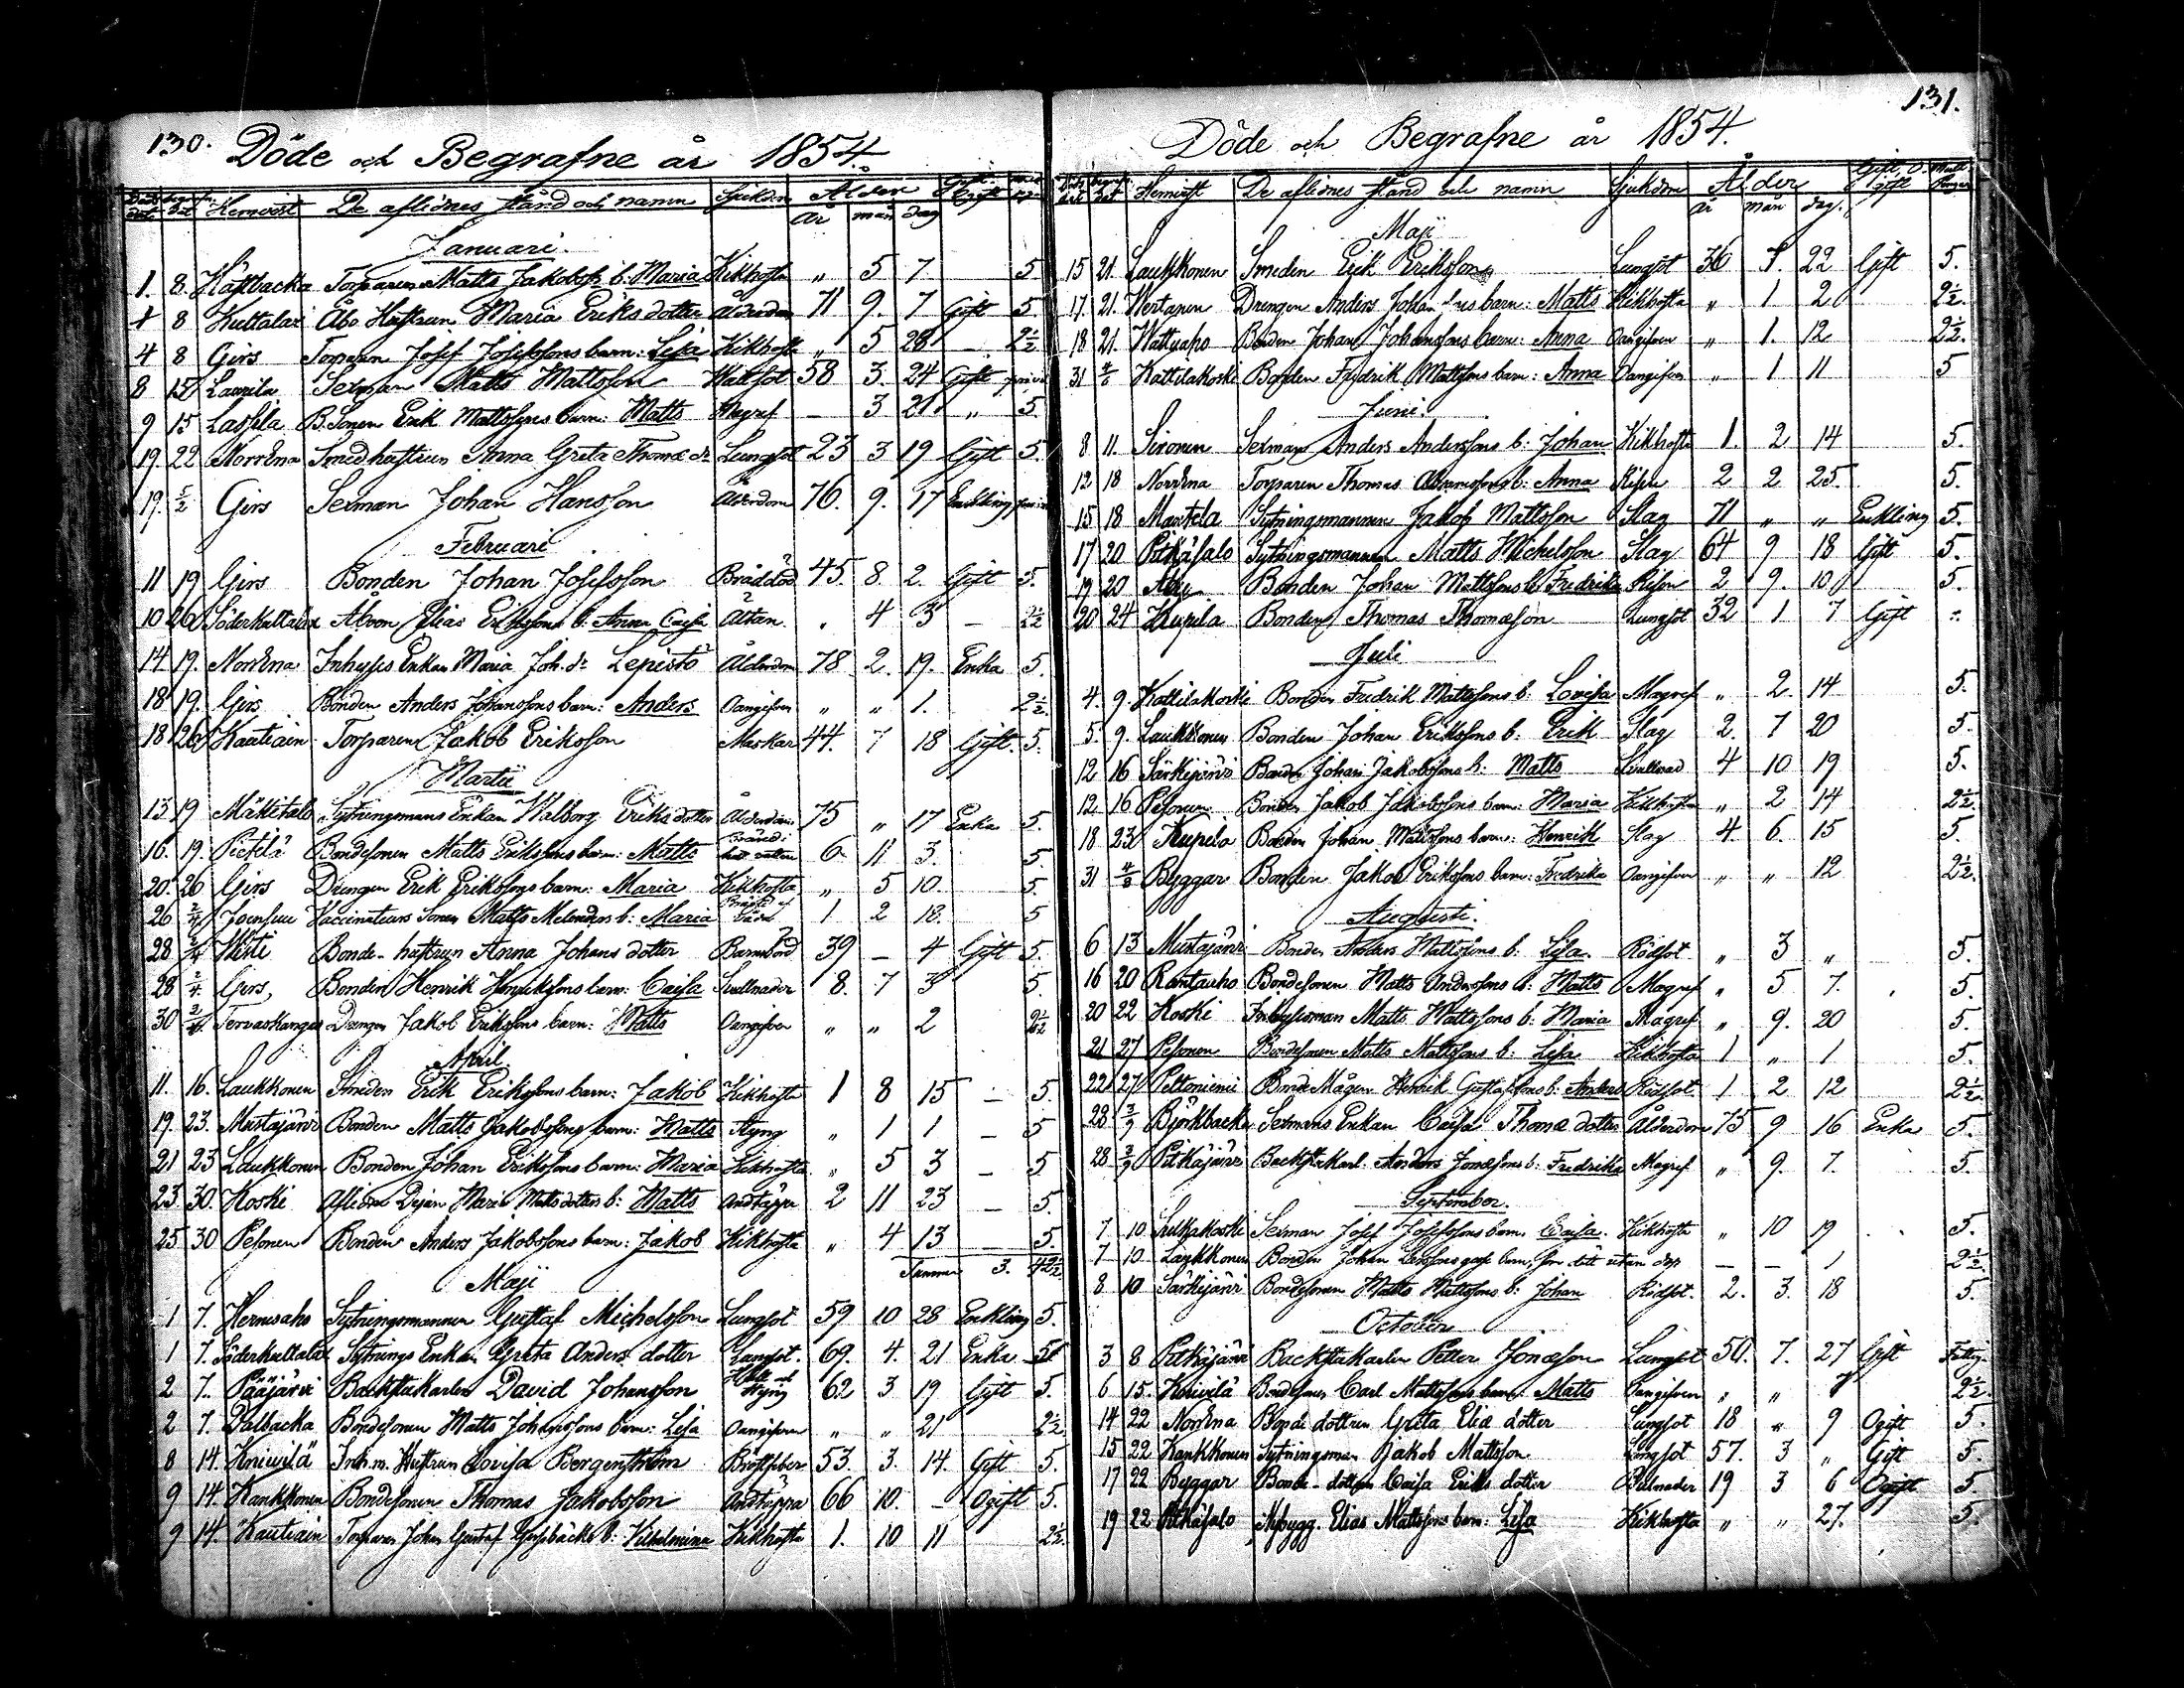 130.
Döde och Begrafne år 1854.
Hemvist De aflidnes stånd och namn Sjukdom Ålder
år mån dag
Januari.
1. 8. Torparen Matts Jakobss b. Maria Kikhosta " 5 7 5.
8 Kuttalax Åbo Hustrun Maria Eriks dotter Ålderdom 71 9. 7 Gift 5
4 8 Girs Torparen Josef Josefssons barn: Lisa Kikhosta " 5 28 – 2½
8 15 Laurila Sexman Matts Mattsson Wattsot 58 3. 24 Gift
9 15 Lassila B. Sonen Erik Mattssons barn: Matts Magref – 3 21 " 5.
19. 22 Norrena Smedhustrun Anna Greta Thomæ dr Lungsot 23 3 19 Gift 5.
19. 5/2 Girs Sexman Johan Hansson Ålderdom 76. 9. 17 Enkling
Februari
11 19 Girs Bonden Johan Josefsson Bråddöd 45. 8. 2. Gift 5.
10 26 Söderkultalax Elias Erikssons b. Anna Caisa Altan . 4 3 – 2½
14 19. Norrena Inhyses Enkan Maria Joh. dr Lepistö Ålderdom 78 2. 19. Enka 5.
18 19. Girs Bonden Anders Johanssons barn: Anders Oangifven " " 1. 2½.
18 26 Kautiain Torparen Jakob Eriksson Maskar 44. 7 18 Gift. 5.
Martii
13. 19 Mäkitalo Sytningsmans Enkan Walborg Eriks dotter Ålderdom 75 " 17 Enka 5.
16. 19. Pietilä Bondesonen Matts Erikssons barn: Matts Bränd i het vatten 6 11 3. 5.
20. 26 Girs Drengen Erik Erikssons barn: Maria Kikhosta " 5 10. 5.
26 2/4 Joensuu Vaccinateurs Sonen Matts Melenders b: Maria 1 2 18. 5
28 2/4 Wisti Bonde-hustrun Anna Johans dotter Barnsbörd 39 – 4 Gift 5.
28 2/4. Girs, Bonden Henrik Henrikssons barn: Caisa Svullnader 8. 7 3 5.
30 2/4 Tervaskangas Drengen Jakob Erikssons barn: Matts Oangifven " " 2 2½
April
11. 16. Laukkonen Smeden Erik Erikssons barn: Jakob Kikhosta 1 8 15 – 5.
19. 23. Mustajärvi Bonden Matts Jakobssons barn: Matts Styng " 1 1 – 5
21 23 Laukkonen Bonden Johan Erikssons barn: Maria Kikhosta " 5 3 – 5
23. 30. Koski Aflidna Pigan Maria Matts dotters b: Matts Andtäppa 2 11 23 – 5.
25 30 Pesonen Bonden Anders Jakobssons barn: Jakob Kikhosta " 4 13 5.
Summa 3. 42½
Maji
1 7. Hernesaho Sytningsmannen Gustaf Michelsson Lungsot 59 10 28 Enkling 5.
1 7. Söderkultalax Sytnings Enkan Greta Anders dotter Lungsot. 69. 4. 21 Enka 5
2 7. Pääjärvi Backstukarlen David Johansson Håll och Styng 62 3 19 Gift 5.
2 7. Dalbacka Bondesonen Matts Johanssons barn: Lisa Oangifven " " 21 2½
8 14. Knivilä Inh. m. Hustrun Lovisa Bergenström Bröstfeber 53. 3. 14. Gift 5.
9 14. Kankkonen Bondesonen Thomas Jakobsson Andtäppa 66 10. – Ogift 5.
9 14. Kautiain Torparen Johan Gustaf b: Vilhelmina Kikhosta 1. 10 11 2½.
131.
Döde och Begrafne år 1854.
Hemvist De aflidnes stånd och namn Sjukdom Ålder Gift, O-gift
år mån dag.
Maji
15 21. Laukkonen Smeden Erik Eriksson Lungsot 36 22 Gift 5.
17. 21. Wertanen Drengen Anders Johanssons barn: Matts Kikhosta " 1 2 2½.
18 21. Wattuaho Bonden Johan Johanssons barn: Anna Oangifven " 1. 12 2½.
31 Kattilakoski Bonden Fredrik Mattssons barn: Anna Oangifven " 1 11 5
Juni.
8 11. Sironen Sexman Anders Anderssons b: Johan Kikhosta 1. 2 14 5.
12 18 Norrena Torparen Thomas Abramssons b: Anna Risen 2 2 25. 5.
15 18 Martila Sytningsmannen Jakob Mattsson Slag 71 " " Enkling 5.
17 20 Pitkäsalo Sytningsmannen Matts Michelsson Slag 64 9 18 Gift 5.
19 20 Bonden Johan Mattssons b. Fredrika Risen 2 9. 10 5.
20 24 Kupila Bonden Thomas Thomæson Lungsot 32 1 7 Gift
Juli
4. 9. Kattilakoski Bonden Fredrik Mattssons b: Lovisa Magref " 2. 14 5.
5. 9. Laukkonen Bonden Johan Erikssons b: Erik Slag 2. 7 20 5.
12 16 Särkijärvi Bonden Johan Jakobssons b: Matts Svullnad 4 10 19 5.
12 16 Pesonen Bonden Jakob Jakobssons barn: Maria Kikhosta " 2 14 2½.
18 23 Kupila Bonden Johan Mattssons barn: Henrik Slag 4. 6. 15 5.
31 Byggar Bonden Jakob Erikssons barn: Fredrika Oangifven " " 12 2½.
Augusti.
6 13 Mustajärvi Bonden Anders Mattssons b: Lisa Rödsot " 3 " 5.
16 20 Rantaaho Bondesonen Matts Anderssons b: Matts Magref " 5 7. 5.
20 22 Koski Inhysesman Matts Mattssons b: Maria Magref " 9. 20 5.
21 27 Pesonen Bondesonen Matts Mattssons b: Lisa Kikhosta 1 " 1 5.
22 27 Peltoniemi Bonde Mågen Henrik Gustafssons b: Anders Rödsot 1 2 12 2½.
28 3/9 Björkbacka Sexmans Enkan Caisa Thomæ dotter Ålderdom 75 9 16 Enka 5.
28. 3/9 Pitkäjärvi Backstukarl Anders Jonæsons b: Fredrika Magref " 9. 7. 5.
September.
7 10 Sexman Josef Josefssons barn Caisa. Kikhosta " 10 19 5.
7 10 Laukkonen Bonden Johan barn, utan dop – – 1 2½.
8 10 Särkijärvi Bondesonen Matts Mattssons b: Johan Rödsot. 2. 3. 18 5.
October
3 8 Pitkäjärvi Backstukarlen Petter Jonæson Lungsot 50. 7. 27 Gift
6 15. Knivilä Bondesonen Carl Mattssons barn: Matts Oangifven " " 2½.
14 22 Norrena Bonde dottren Greta Eliæ dotter Lungsot 18 " 9 Ogift 5.
15 22 Kankkonen Sytningsman Jakob Mattsson Lungsot 57. 3 " Gift 5.
17 22 Byggar Bonde-dottren Caisa Eriks dotter 19 3 6 Ogift 5.
19 22 Pitkäsalo Nybygg. Elias Mattssons barn: Lisa Kikhosta " " 27. 5.